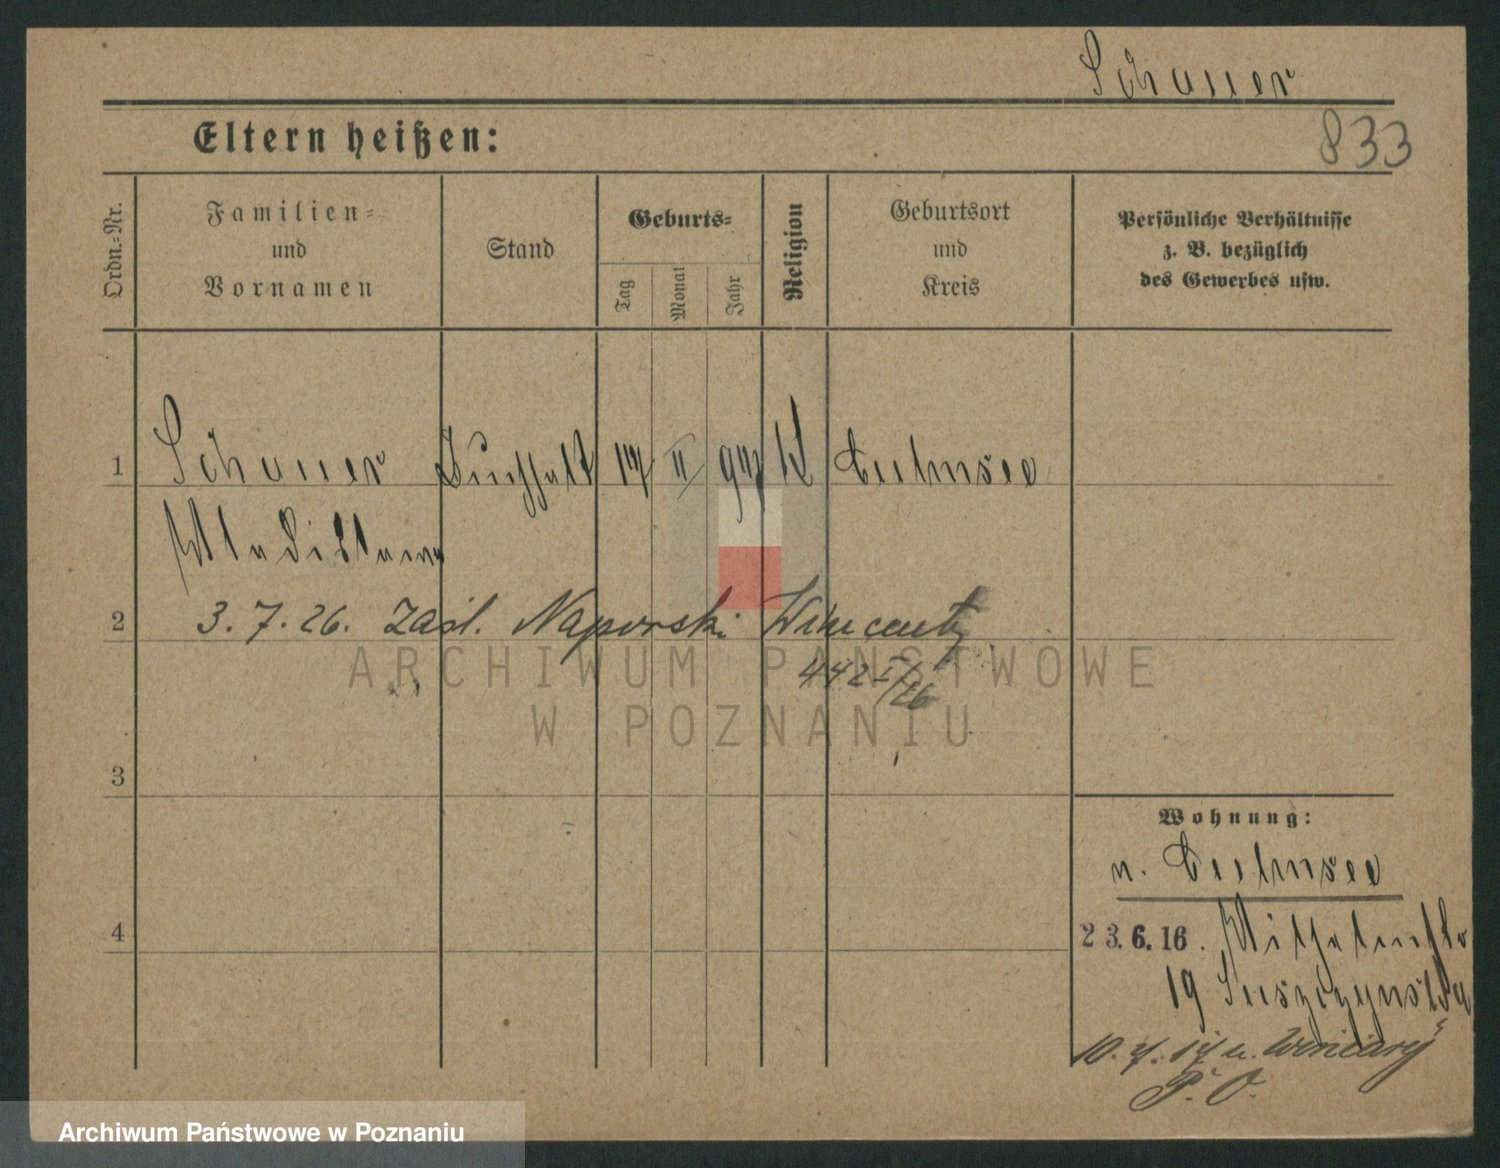 Schauer
833
Eltern heißen:
Ordn.-Nr.
Familien-
und
Vornamen
Stand
Geburts-
Tag
Monat
Jahr
Religion
Geburtsort
und
Kreis
Persönliche Verhältnisse
z. B. bezüglich
des Gewerbes usw.
1
Schauer Buchhalt 17 II 97 K Culmsee
Wladislaus
2
3. 7. 26. Zaśl. Naporski Wincenty
442 I/26
ARCHIWUM PAŃSTWOWE
W POZNANIU
3
Wohnung:
n. Culmsee
4
23.6.16.
19
10. 7. 17 n. Winiary
P. O.
Archiwum Państwowe w Poznaniu